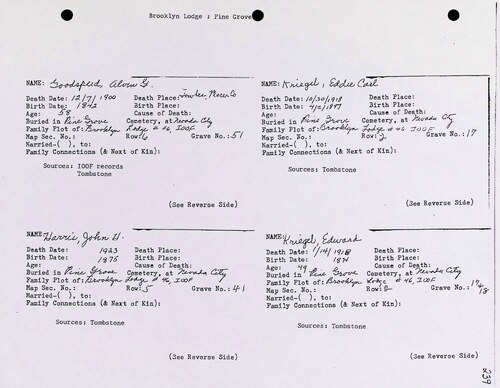 Brooklyn Lodge : Pine Grove
NAME: Goodspeed, Alvin G.
Death Date: 12/7/1900 Death Place: Towle, Placer Co
Birth Date: 1842 Birth Place:
Age: 58 Cause of Death:
Buried in Pine Grove Cemetery, at Nevada City
Family Plot of: Brooklyn Lodge # 46, IOOF
Map Sec. No.: Row: 6 Grave No.: 51
Married-( ), to:
Family Connections (& Next of Kin):
Sources: IOOF records
Tombstone
(See Reverse Side)
NAME: Kriegel, Eddie Carl
Death Date: 10/30/1918 Death Place:
Birth Date: 4/2/1897 Birth Place:
Age: Cause of Death:
Buried in Pine Grove Cemetery, at Nevada City
Family Plot of: Brooklyn Lodge # 46, IOOF
Map Sec. No.: Row: 2 Grave No.: 17
Married-( ), to:
Family Connections (& Next of Kin):
Sources: Tombstone
(See Reverse Side)
NAME: Harris, John H.
Death Date: 1923 Death Place:
Birth Date: 1875 Birth Place:
Age: Cause of Death:
Buried in Pine Grove Cemetery, at Nevada City
Family Plot of: Brooklyn Lodge # 46, IOOF
Map Sec. No.: Row: 5 Grave No.: 41
Married-( ), to:
Family Connections (& Next of Kin):
Sources: Tombstone
(See Reverse Side)
NAME: Kriegel, Edward
Death Date: 1/14/1918 Death Place:
Birth Date: Birth Place:
Age: 49 Cause of Death:
Buried in Pine Grove Cemetery, at Nevada City
Family Plot of: Brooklyn Lodge # 46, IOOF
Map Sec. No.: Row: 2 Grave No.:
Married-( ), to:
Family Connections (& Next of Kin):
Sources: Tombstone
(See Reverse Side)
239